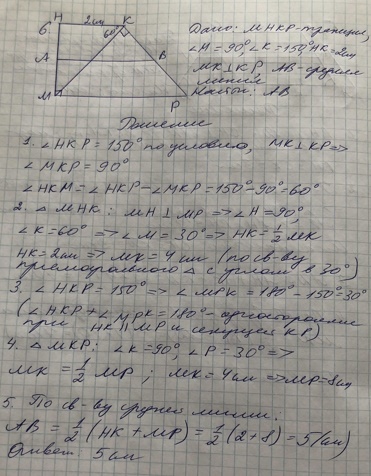 6.
H 2см K
60°
A B
M P
Дано: MHKP-трапеция,
∠M = 90° ∠K = 150°, HK = 2см
MK⊥KP AB-средняя
линия
Найти: AB
Решение
1. ∠HKP = 150° по условию, MK⊥KP =>
∠MKP = 90°
∠HKM = ∠HKP - ∠MKP = 150° - 90° = 60°
2. △MHK: MH⊥MP => ∠H = 90°,
∠K = 60° => ∠M = 30° => HK = 1/2 MK
HK = 2см => MK = 4см (по св-ву
прямоугольного △ с углом в 30°)
3. ∠HKP = 150° => ∠MPK = 180° - 150° = 30°
(∠HKP + ∠MPK = 180° - односторонние
при HK ∥ MP и секущей KP)
4. △MKP: ∠K = 90°, ∠P = 30° =>
MK = 1/2 MP ; MK = 4см => MP = 8см
5. По св-ву средней линии:
AB = 1/2 (HK + MP) = 1/2 (2 + 8) = 5 (см)
Ответ 5 см